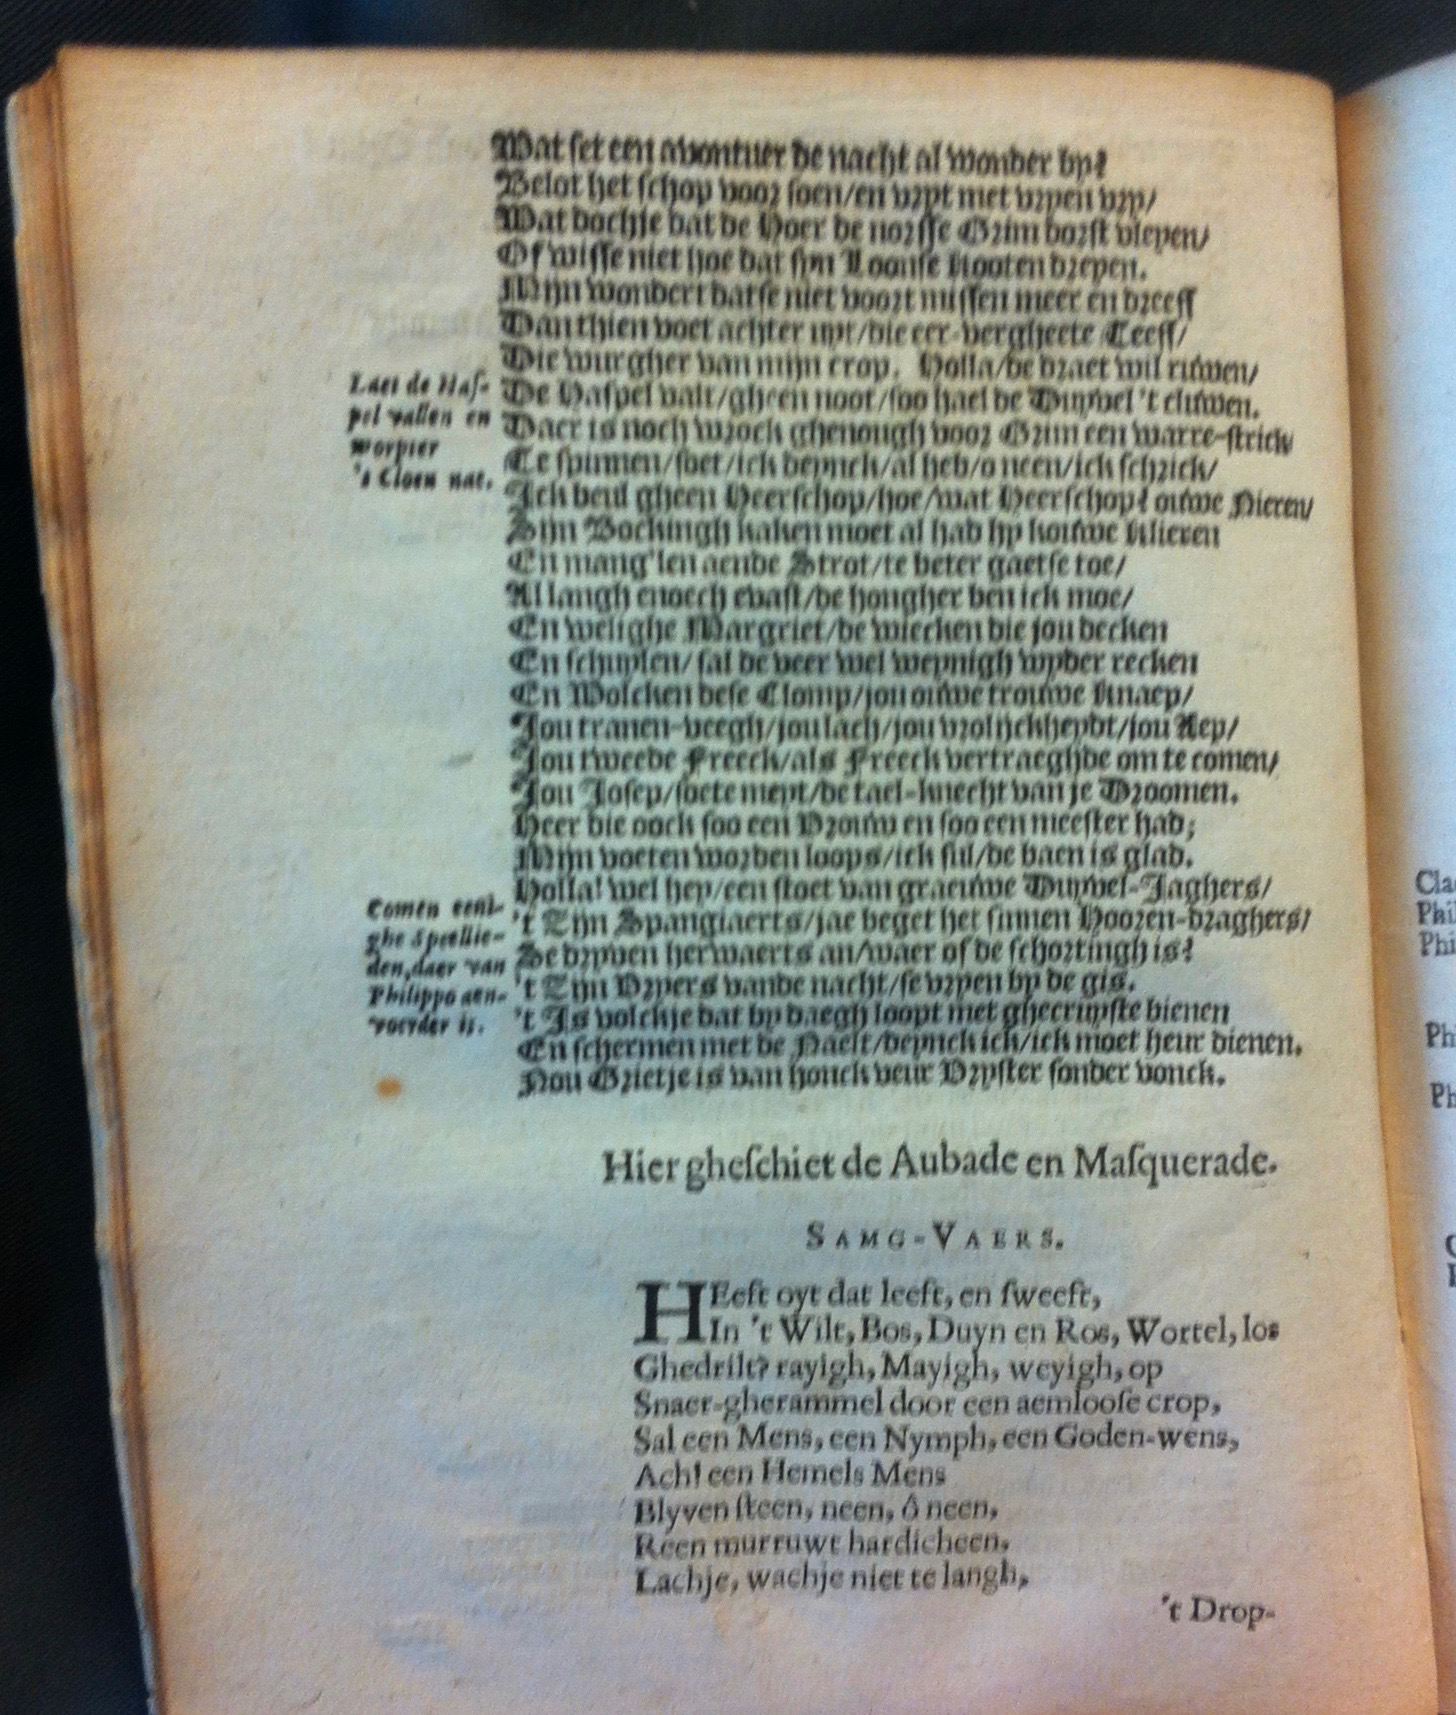 Wat set een avontuer de nacht al wonder by?
Belot het schop voor soen/en vrypt met vrypen vry/
Wat dochje dat de Hoer de norsse Grim dorst vleyen/
Of wisse niet hoe dat syn Loonse Kooten dreyen.
Mijn wondert datse niet voort missen meer en dreeff
Dan thien voet achter uyt/die eer-vergheete Teeff/
Die wurgher van mijn crop. Holla/de draet wil ruwen/
Laet de Has-
pel vallen en
worpter
's Cloen nae.
De Haspel valt/gheen noot/soo hael de Duyvel 't cluwen.
Daer is noch wrock ghenough voor Grim een warre-strick
Te spinnen/soet/ick deynck/al heb/o neen/ick schrick/
Ick beul gheen Heerschop/hoe/wat Heerschop? ouwe Nieren/
Sijn Bockingh kaken moet al had hy kouwe Klieren
En mang'len aende Strot/te beter gaetse toe/
Al langh enoech evast/de hongher ben ick moe/
En welighe Margriet/de wiecken die jou decken
En schuylen/sal de veer wel weynigh wyder recken
En Wolcken dese Clomp/jou ouwe trouwe Knaep/
Jou tranen-veegh/jou lach/jou vrolijckheydt/jou Aep/
Jou tweede Freeck/als Freeck vertraeghde om te comen/
Jou Josep/soete meyt/de tael-knecht van je Droomen.
Heer die oock soo een Vrouw en soo een meester had;
Mijn voeten worden loops/ick sul/de baen is glad.
Holla! wel hey/een stoet van graeuwe Duyvel-Jaghers/
Comen eeni-
ghe Speellie-
den, daer van
Philippo aen-
voerder is.
't Zijn Spangiaerts/jae beget het sinnen Hooren-draghers/
Se dryven herwaerts an/waer of de schortingh is?
't Zijn Vrypers vande nacht/se vryen by de gis.
't Is volckje dat by daegh loopt met ghecruyste bienen
En schermen met de Naelt/deynck ick/ick moet heur dienen.
Nou Grietje is van honck veur Vryster sonder vonck.
Hier gheschiet de Aubade en Masquerade.
SAMG-VAERS.
HEeft oyt dat leeft, en sweeft,
In 't Wilt, Bos, Duyn en Ros, Wortel, los
Ghedrilt? rayigh, Mayigh, weyigh, op
Snaer-gherammel door een aemloose crop,
Sal een Mens, een Nymph, een Goden-wens,
Ach! een Hemels Mens
Blyven steen, neen, ô neen,
Reen murruwt hardicheen.
Lachje, wachje niet te langh,
't Drop-
Cla
Phil
Phi
Ph
Ph